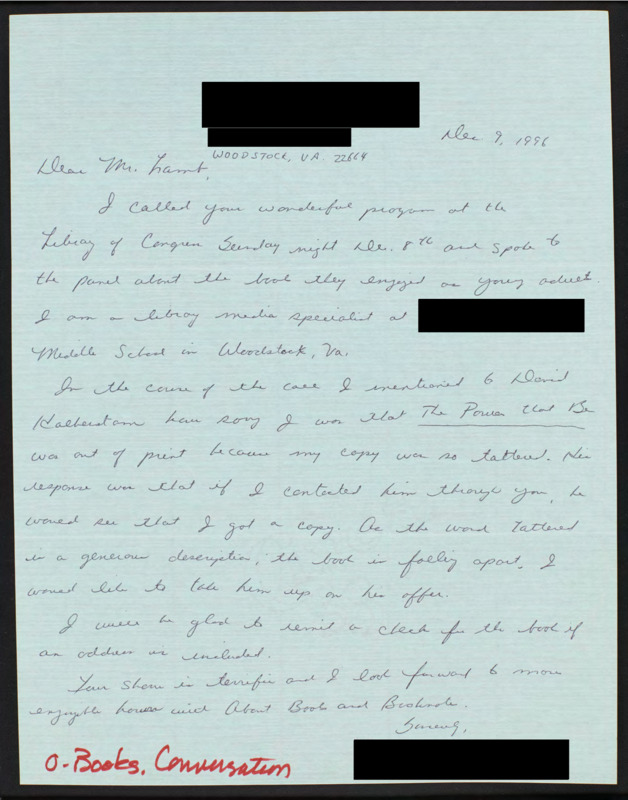 Dec 9, 1996
WOODSTOCK, VA. 22664
Dear Mr. Lamb,
I called your wonderful program at the
Library of Congress Sunday night Dec. 8th and spoke to
the panel about the book they enjoyed as young adults.
I am a library media specialist at
Middle School in Woodstock, Va.
In the course of the call I mentioned to David
Halberstam how sorry I was that The Powers that Be
was out of print because my copy was so tattered. His
response was that if I contacted him through you, he
would see that I got a copy. As the word tattered
is a generous description, the book is falling apart, I
would like to take him up on his offer.
I will be glad to remit a check for the book if
an address is included.
Your show is terrific and I look forward to more
enjoyable hours with About Books and Booknotes.
Sincerely,
O-Books, Conversation